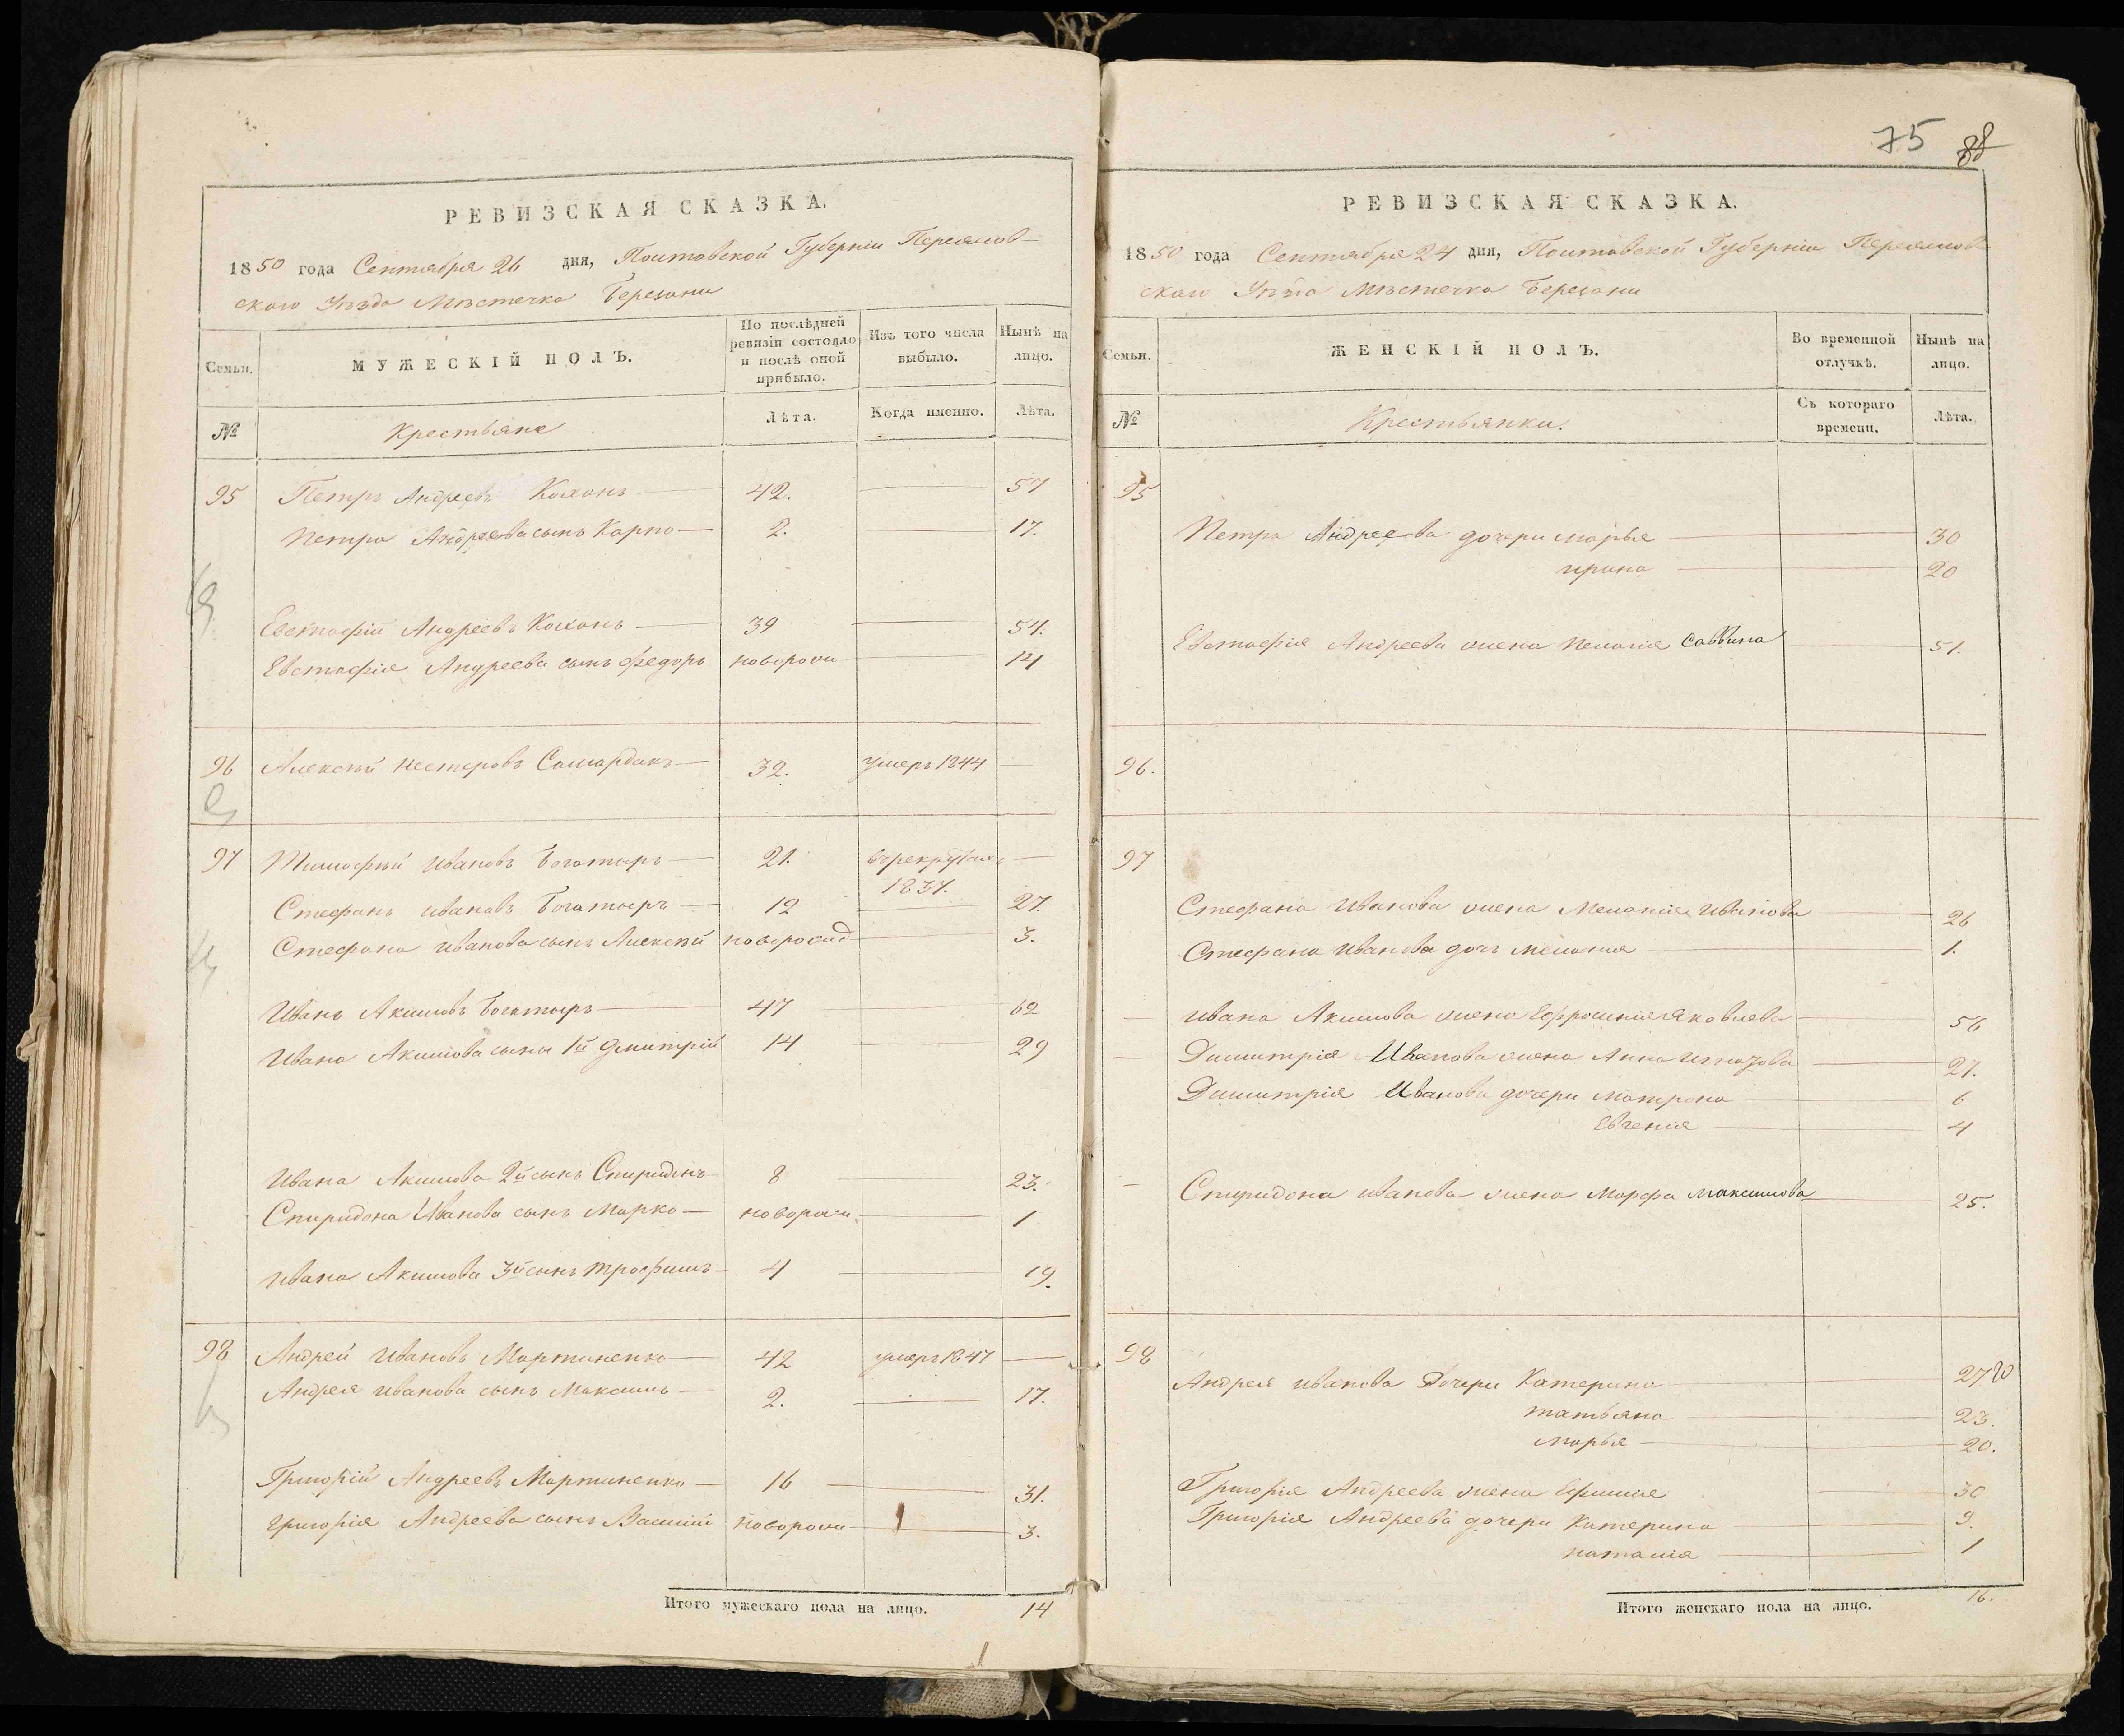 75 88
РЕВИЗСКАЯ СКАЗКА.
1850 года Сентября 26 дня, Полтавской Губерніи Переяслов-
скаго Уѣзда Мѣстечка Березани
Семьи.
МУЖЕСКІЙ ПОЛЪ.
По послѣдней ревизіи состояло и послѣ оной прибыло.
Изъ того числа выбыло.
Нынѣ на лицо.
№
Крестьяне
Лѣта.
Когда именно.
Лѣта.
95 Петръ Андреевъ Коханъ 42. 57
Петра Андреева сынъ Карпо 2. 17.
Евстафій Андреевъ Коханъ 39 54.
Евстафія Андреева сынъ Федоръ новорож 14
96 Алексѣй Нестеровъ Самардакъ 32. умеръ 1844
97 Тимофѣй Ивановъ Богатыръ 21. въ рекрутахъ
1837.
Стефанъ Ивановъ Богатыръ 12 27.
Стефана Иванова сынъ Алексѣй новорожд 3.
Иванъ Акимовъ Богатыръ 47 62
Ивана Акимова сыны 1й Дмитрій 14 29
Ивана Акимова 2й сынъ Спиридонъ 8 23.
Спиридона Иванова сынъ Марко новорож. 1
Ивана Акимова 3й сынъ Трофимъ 4 19.
98 Андрей Ивановъ Мартиненко 42 умеръ 1847
Андрея Иванова сынъ Максимъ 2. 17.
Григорій Андреевъ Мартиненко 16 31.
Григорія Андреева сынъ Василій новорож 3.
Итого мужескаго пола на лицо. 14
РЕВИЗСКАЯ СКАЗКА.
1850 года Сентября 24 дня, Полтавской Губерніи Переяслов
скаго Уѣзда Мѣстечка Березани
Семьи.
ЖЕНСКІЙ ПОЛЪ.
Во временной отлучкѣ.
Нынѣ на лицо.
№
Крестьянки.
Съ котораго времени.
Лѣта.
95
Петра Андреева дочери Марья 30
Ирина 20
Евстафія Андреева жена Пелагія Саввина 51.
96.
97
Стефана Иванова жена Меланія Иванова 26
Стефана Иванова дочь Меланія 1.
Ивана Акимова жена Ефросинія Яковлева 56
Димитрія Иванова жена Анна Игнатова 27.
Димитрія Иванова дочери Матрона 6
Евгенія 4
Спиридона Иванова жена Марфа Максимова 25.
98
Андрея Иванова Дочери Катерина 27
Татьяна 23.
Марья 20.
Григорія Андреева жена Ефимія 30
Григорія Андреева дочери Катерина 9.
Наталія 1
Итого женскаго пола на лицо. 16.